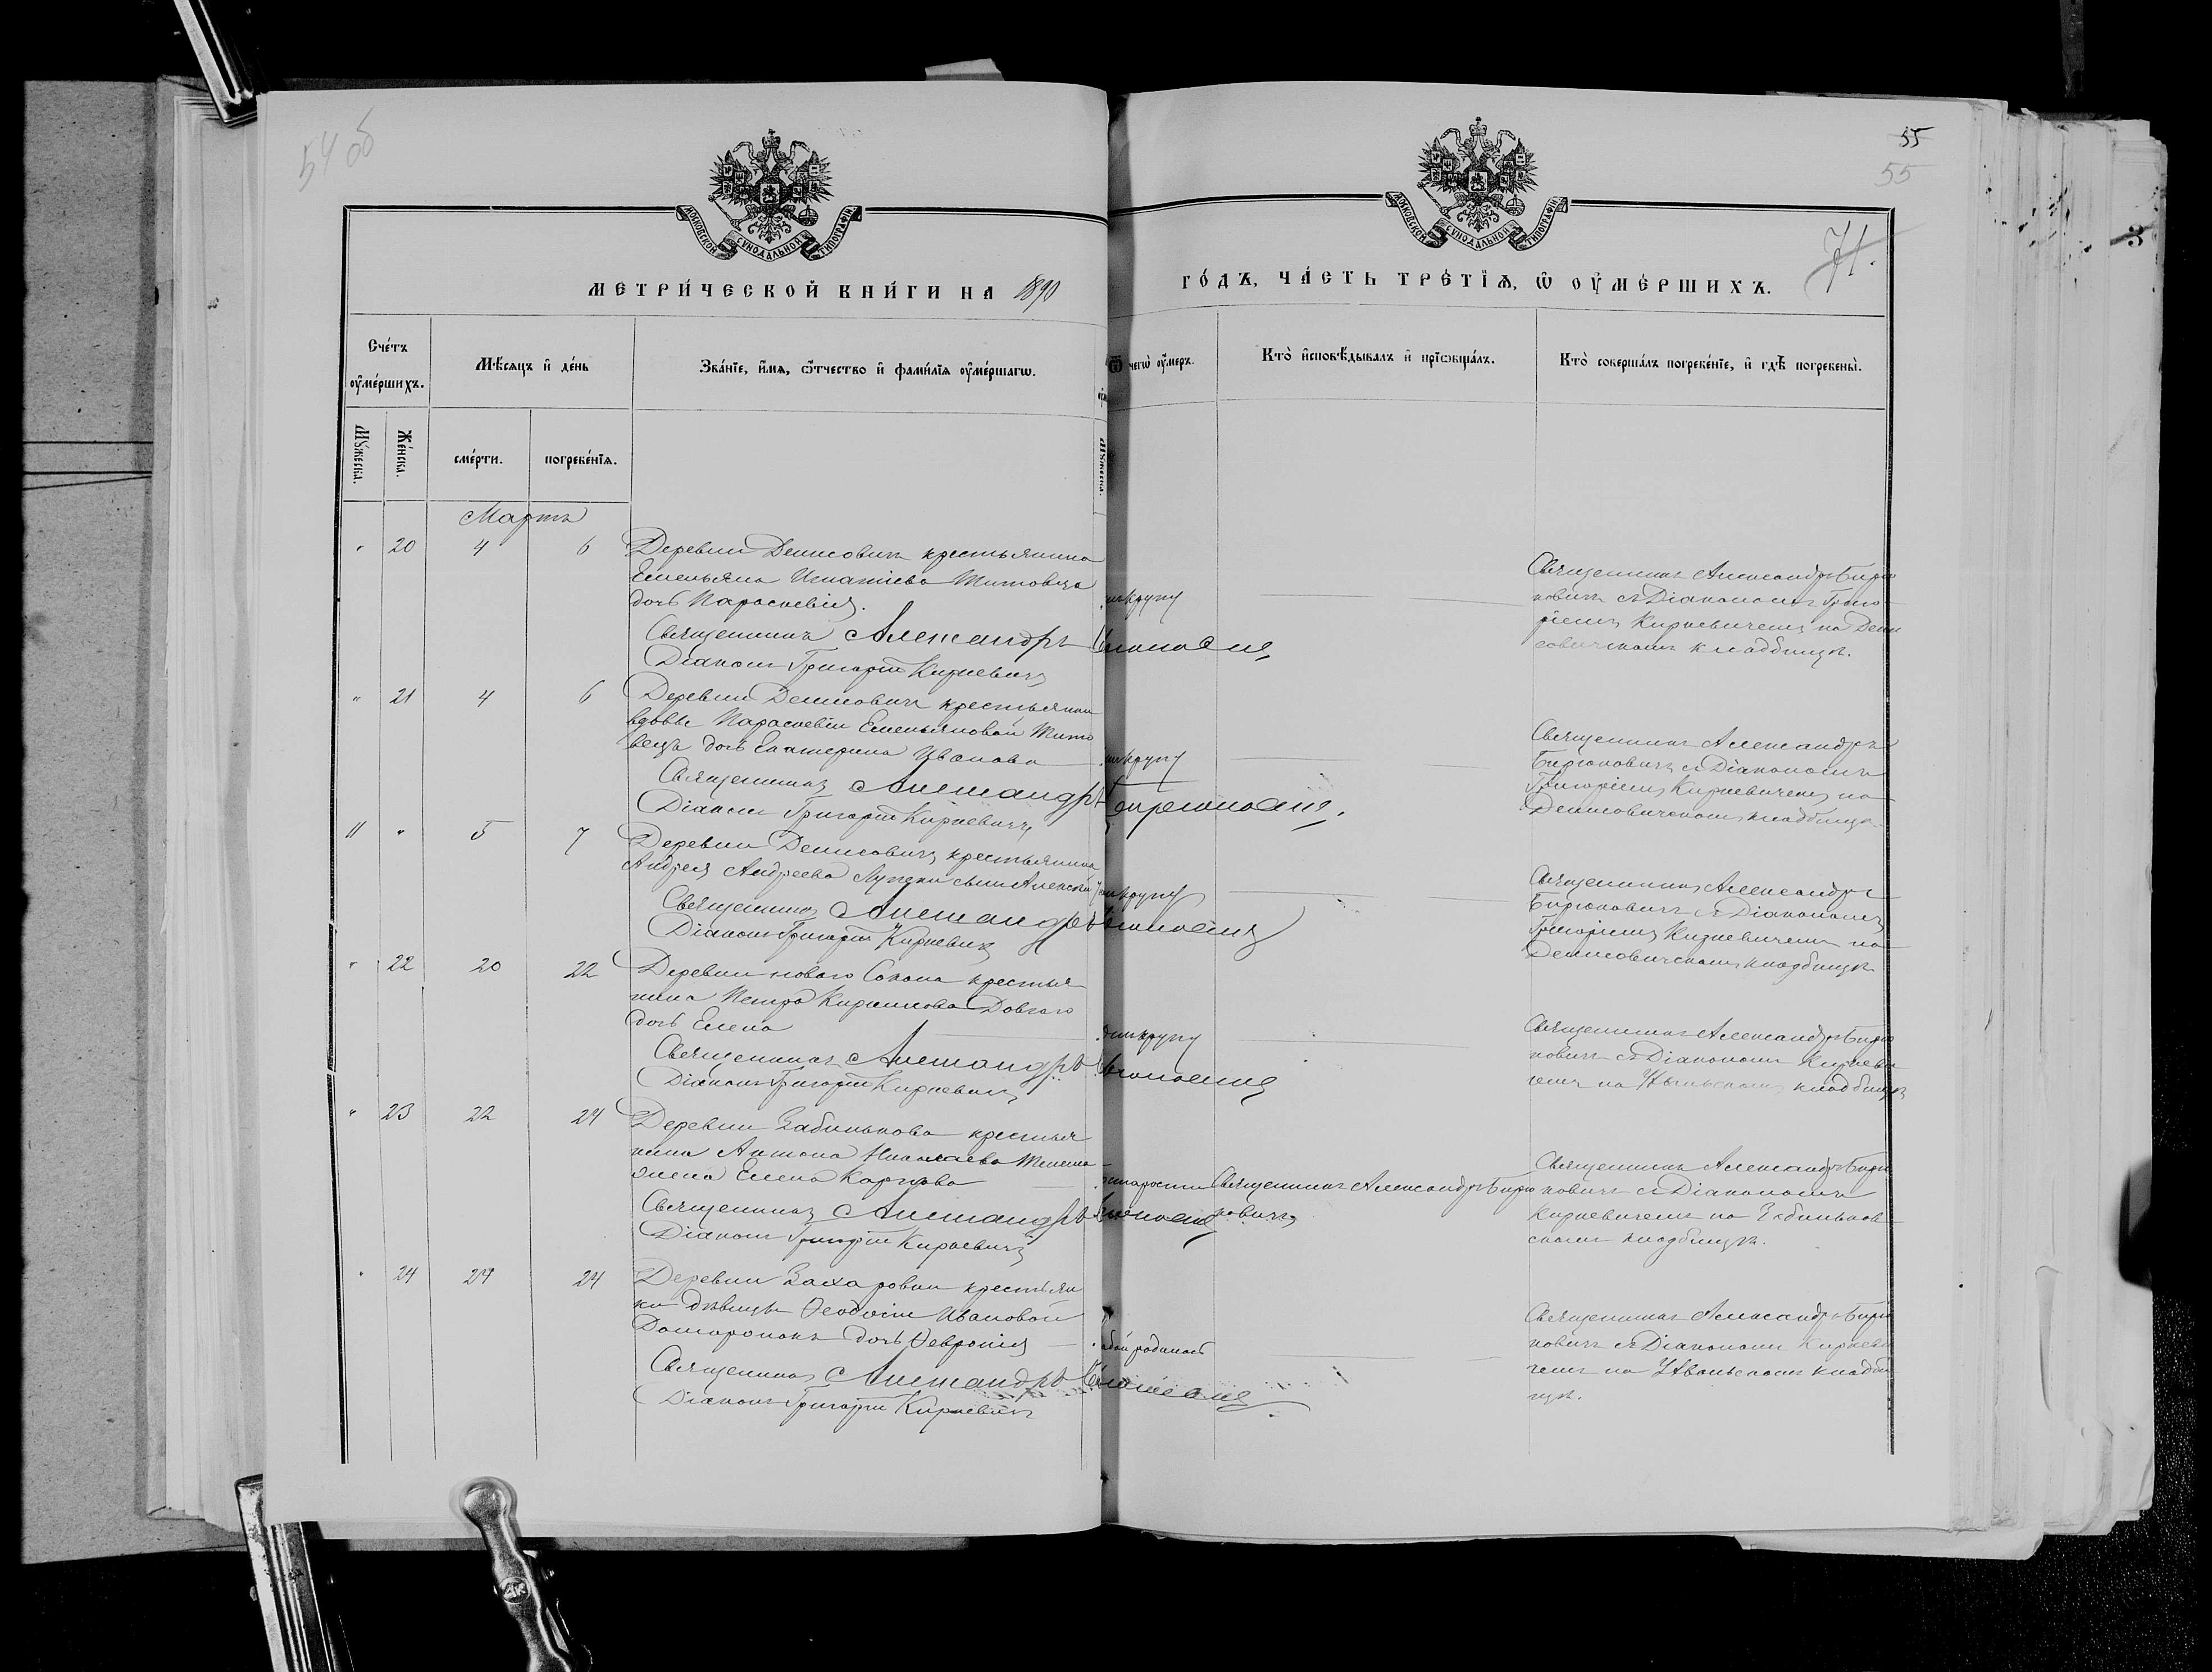 54 об
55
55
71.
МОСКОВСКОЙ СѴНОДАЛЬНОЙ ТИПОГРАФІИ
МОСКОВСКОЙ СѴНОДАЛЬНОЙ ТИПОГРАФІИ
МЕТРИ́ЧЕСКОЙ КНИ́ГИ НА 1890
ГО́ДЪ, ЧА́СТЬ ТРЕ́ТІѦ, Ѡ҆ ОУ҆МЕ́РШИХЪ.
Сче́тъ оу҆ме́ршихъ.
Мѣ́сяцъ и҆ де́нь
Зва́нїе, и҆́мѧ, ѻ҆́тчество и҆ фами́лїѧ оу҆ме́ршагѡ.
Ѿ чегѡ̀ оу҆́меръ.
Кто̀ и҆сповѣ́дывалъ и҆ прїѡбща́лъ.
Кто̀ соверша́лъ погребе́нїе, и҆ гдѣ̀ погребены̀.
Мꙋ́жеска.
Же́нска.
сме́рти.
погребе́нїѧ.
Мартъ
" 20 4 6 Деревни Денисовичъ крестьянина
Емельяна Игнатіева Титовца
дочь Параскевія.
Священникъ Александръ
Діаконъ Григорій Киркевичъ
крупу
Священникъ Александръ Бирю
ковичъ съ Діакономъ Григо
ріемъ Киркевичемъ на Дени
совичскомъ кладбищѣ.
" 21 4 6 Деревни Денисовичъ крестьянки
вдовы Параскевіи Емельяновой Тито
вецъ дочь Екатерина Иванова
Священникъ Александръ
Діаконъ Григорій Киркевичъ
крупу
Священникъ Александръ
Бирюковичъ съ Діакономъ
Григоріемъ Киркевичемъ на
Денисовичскомъ кладбищѣ
11 " 5 7 Деревни Денисовичъ крестьянина
Андрея Андреева сынъ Алексѣй
Священникъ Александръ
Діаконъ Григорій Киркевичъ
крупу
Священникъ Александръ
Бирюковичъ съ Діакономъ
Григоріемъ Киркевичемъ на
Денисовичскомъ кладбищѣ
" 22 20 22 Деревни новаго Сокола крестья
нина Петра Кириллова Довгаго
дочь Елена
Священникъ Александръ
Діаконъ Григорій Киркевичъ
крупу
Священникъ Александръ Бирю
ковичъ съ Діакономъ Киркеви
чемъ на кладбищѣ
" 23 22 24 Деревни Забинькова крестья
нина Антона Николаева
жена Елена Карпова
Священникъ Александръ
Діаконъ Григорій Киркевичъ
старости
Священникъ Александръ Бирю
ковичъ
Священникъ Александръ Бирю
ковичъ съ Діакономъ
Киркевичемъ на Забиньков
скомъ кладбищѣ.
" 24 24 24 Деревни Захаровки крестьян
ки дѣвицы Ѳеодосіи Ивановой
дочь Ѳевронія
Священникъ Александръ
Діаконъ Григорій Киркевичъ
Священникъ Александръ Бирю
ковичъ съ Діакономъ Киркеви
чемъ на кладби
щѣ.